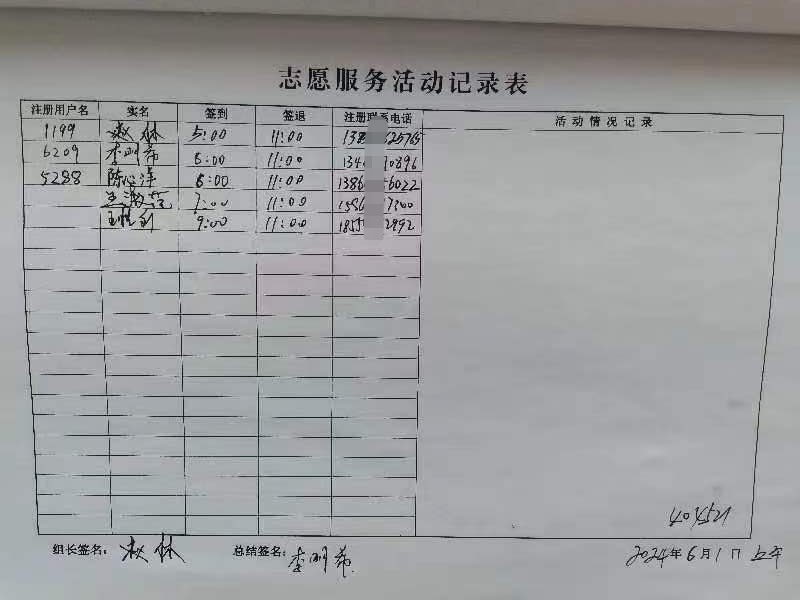 志愿服务活动记录表
注册用户名 实名 签到 签退 注册联系电话 活动情况记录
1199 赵林 5:00 11:00 138 625765
6209 李明希 6:00 11:00 134 0896
5288 陈心洋 6:00 11:00 1386 6022
王 7:00 11:00 1586 7300
王胜利 9:00 11:00 1855 2992
404521
组长签名: 赵林 总结签名: 李明希 2024年6月1日 上午